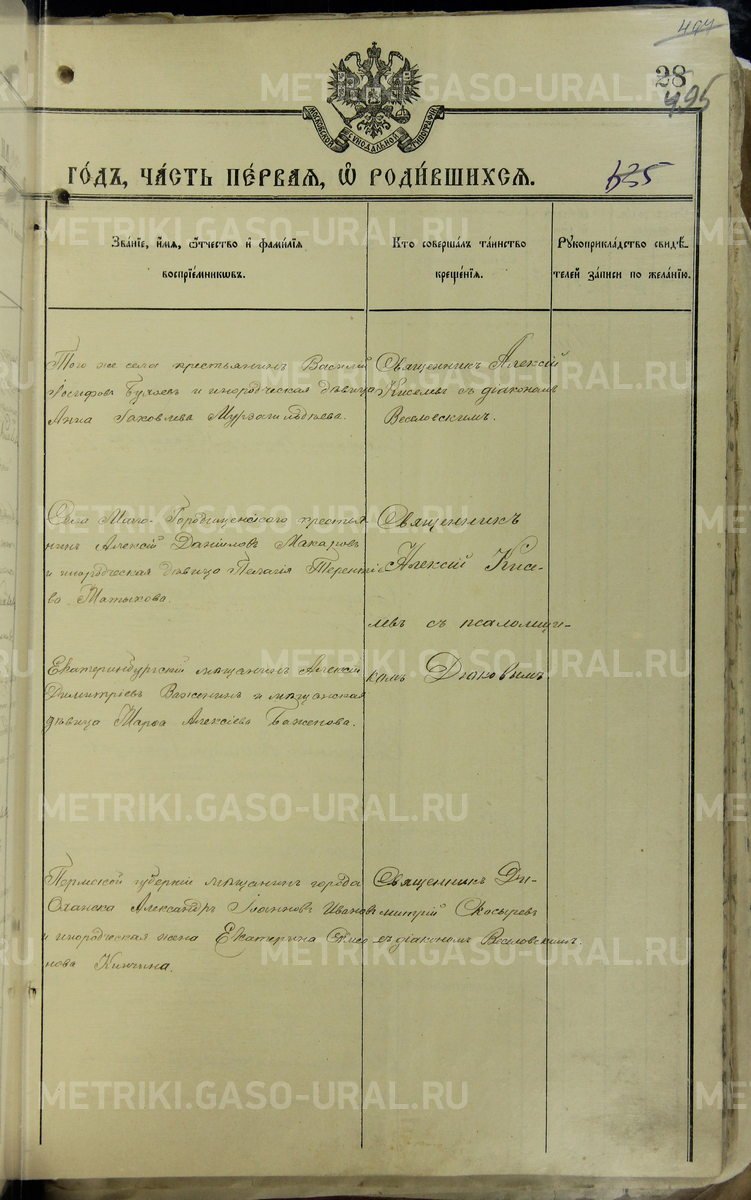 494
28
495
МОСКОВСКОЙ СѴНОДАЛЬНОЙ ТИПОГРАФІИ
ГО́ДЪ, ЧА́СТЬ ПЕ́РВАЯ, Ѡ РОДИ́ВШИХСЯ.
635
Зва́ніе, и́мя, ѻ́тчество и҆ фами́лія
воспріе́мникѡвъ.
Кто соверша́лъ та́инство
креще́нія.
Рꙋкоприкла́дство свидѣ́-
телей за́писи по жела́нію.
Того же села крестьянинъ Василій
Іосифовъ и инородческая дѣвица
Анна Іаковлева
Священникъ Алексій
Киселевъ съ діакономъ
Веселовскимъ.
Села Мало-Городищенскаго крестья
нинъ Алексій Даніиловъ Макаровъ
и инородческая дѣвица Пелагія Теренті
ва
Священникъ
Алексій Кисе-
левъ съ псаломщи-
комъ Дьяковымъ
Екатеринбургскій мѣщанинъ Алексій
Димитріевъ Важенинъ и мѣщанская
дѣвица Марѳа Алексіева Баженова.
Пермской губерніи мѣщанинъ города
Оханска Александръ Іоанновъ Ивановъ
и инородческая жена Екатерина
нова
Священникъ Ди-
митрій Скосыревъ
съ діакономъ Веселовскимъ.
METRIKI.GASO-URAL.RU